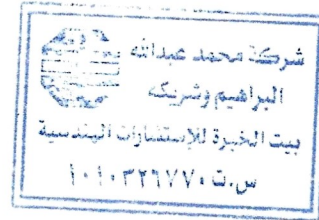 شركة محمد عبدالله
البراهيم وشريكه
بيت الخبرة للإستشارات الهندسية
س.ت ١٠١٠٣٢٦٧٧٠